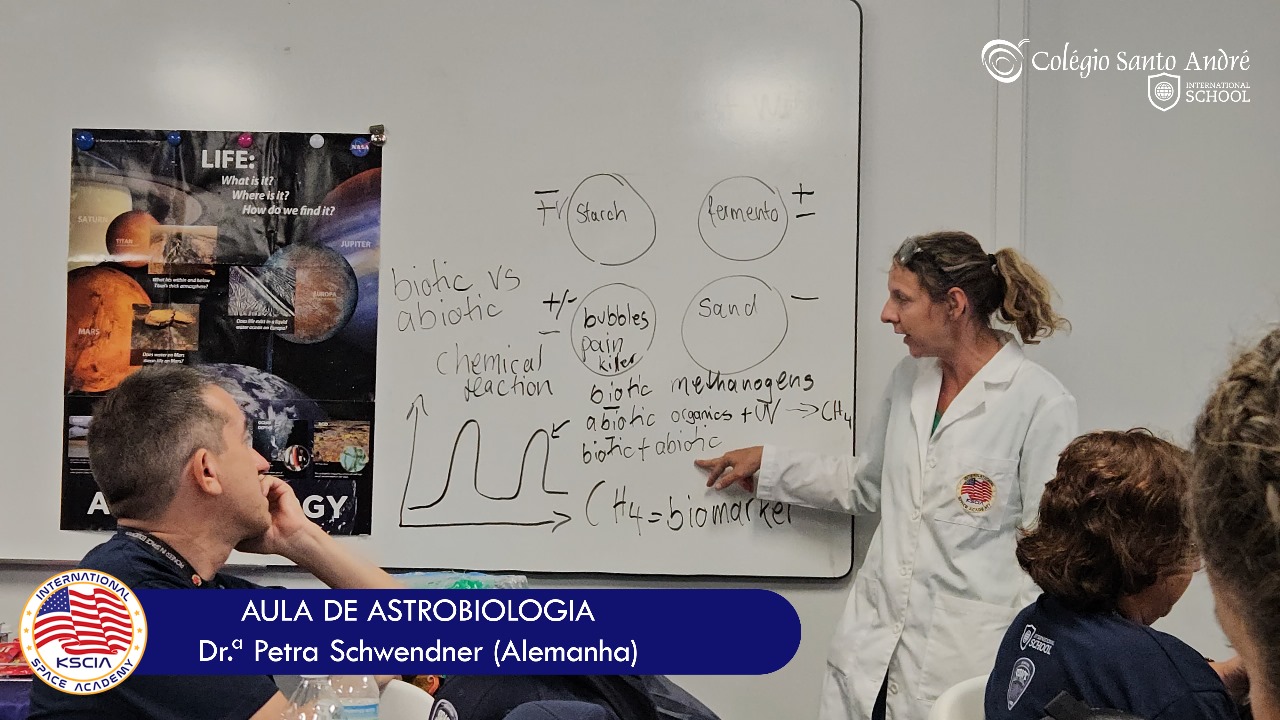 Colégio Santo André
INTERNATIONAL
SCHOOL
NASA
LIFE:
What is it?
Where is it?
How do we find it?
SATURN
TITAN
JUPITER
EUROPA
MARS
What lies within and below
Titan's thick atmosphere?
Does life exist in a liquid
water ocean on Europa?
Does water on Mars
mean life on Mars?
GY
biotic vs
abiotic
chemical
reaction
Starch
fermento
+
−
+/-
−
bubbles
pain
killer
Sand
−
biotic methanogens
abiotic organics + UV → CH4
biotic + abiotic
CH4 = biomarker
AULA DE ASTROBIOLOGIA
Dr.ª Petra Schwendner (Alemanha)
INTERNATIONAL
KSCIA
SPACE ACADEMY
INTERNATIONAL
SCHOOL